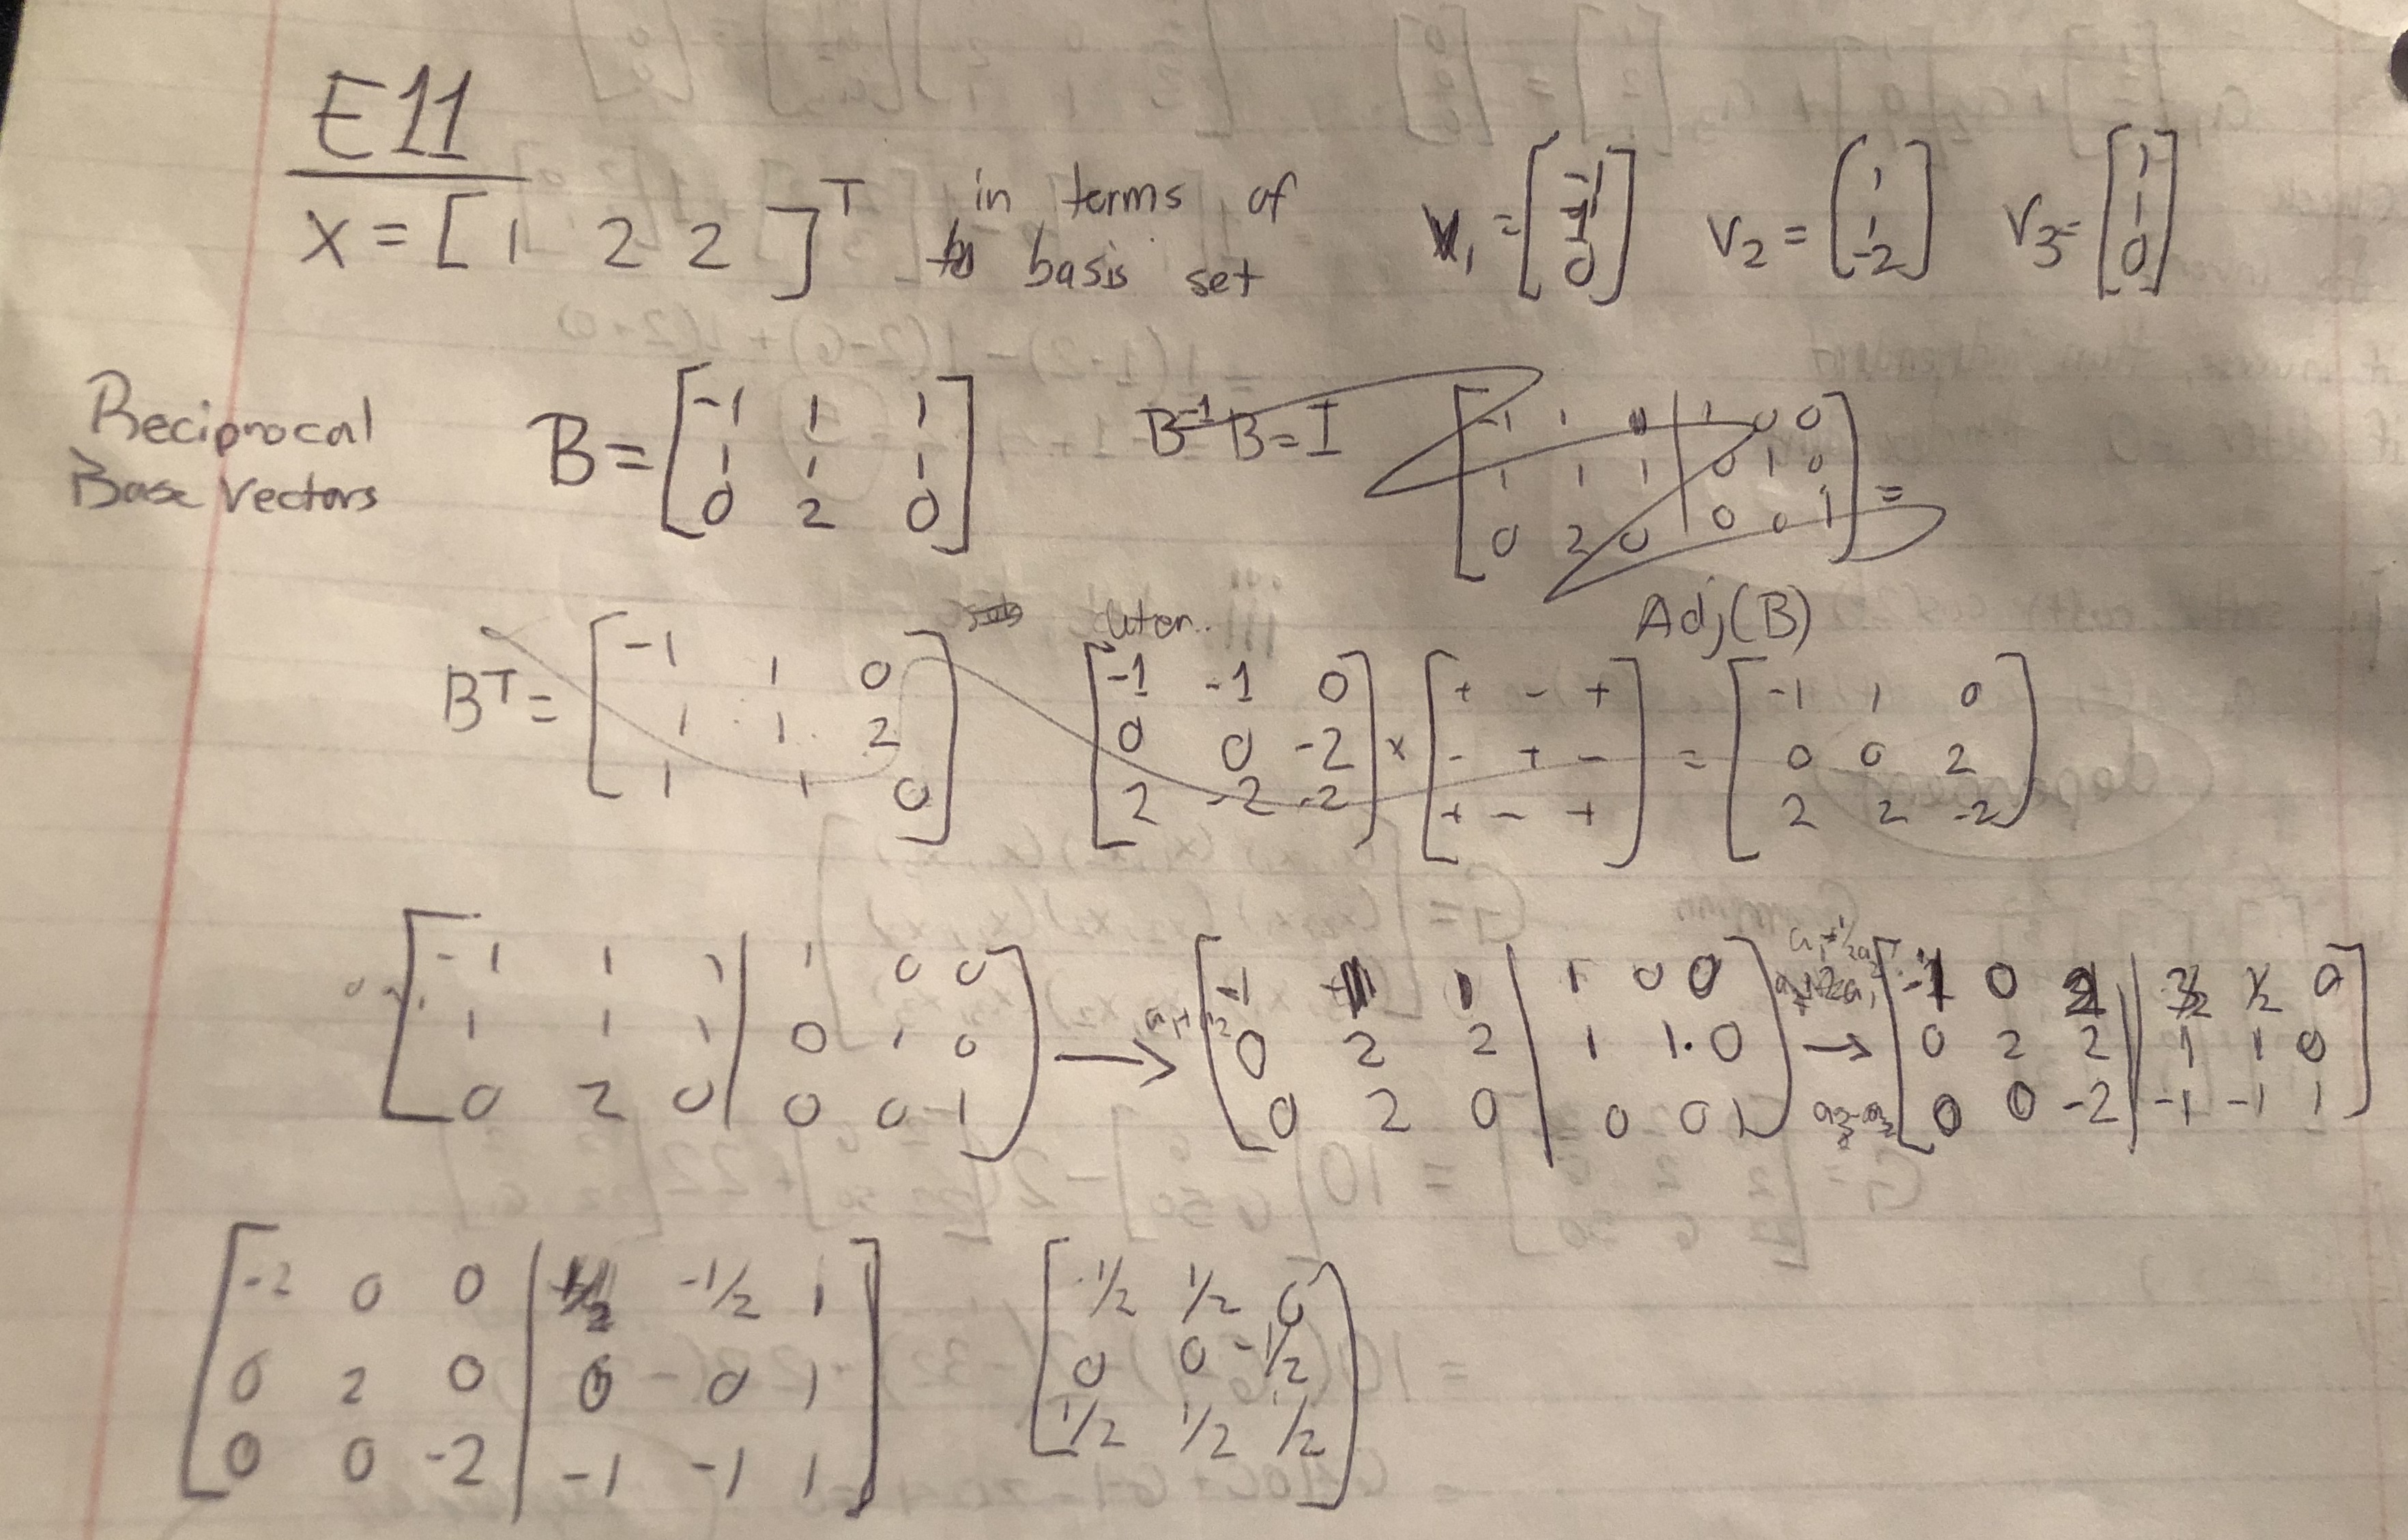 E11
x = [1 2 2]^T in terms of basis set v₁ = [-1 1 0] v₂ = [1 1 -2] v₃ = [1 1 0]
Reciprocal Base Vectors
B = [-1 1 1; 1 1 1; 0 2 0] B⁻¹B = I [-1 1 0 | 1 0 0; 1 1 1 | 0 1 0; 0 2 0 | 0 0 1] =
Adj(B)
B^T = [-1 1 0; 1 1 2; 1 1 0] [-1 -1 0; 0 0 -2; 2 -2 -2] × [+ - +; - + -; + - +] = [-1 1 0; 0 0 2; 2 2 -2]
[-1 1 1 | 1 0 0; 1 1 1 | 0 1 0; 0 2 0 | 0 0 1] → [-1 1 1 | 1 0 0; 0 2 2 | 1 1 0; 0 2 0 | 0 0 1] → [0 2 2 | 1 1 0; 0 0 -2 | -1 -1 1]
[-2 0 0 | -1/2 1; 0 2 0 | 0 0 1; 0 0 -2 | -1 -1 1] [-1/2 1/2 0; 0 0 -1/2; 1/2 1/2 1/2]